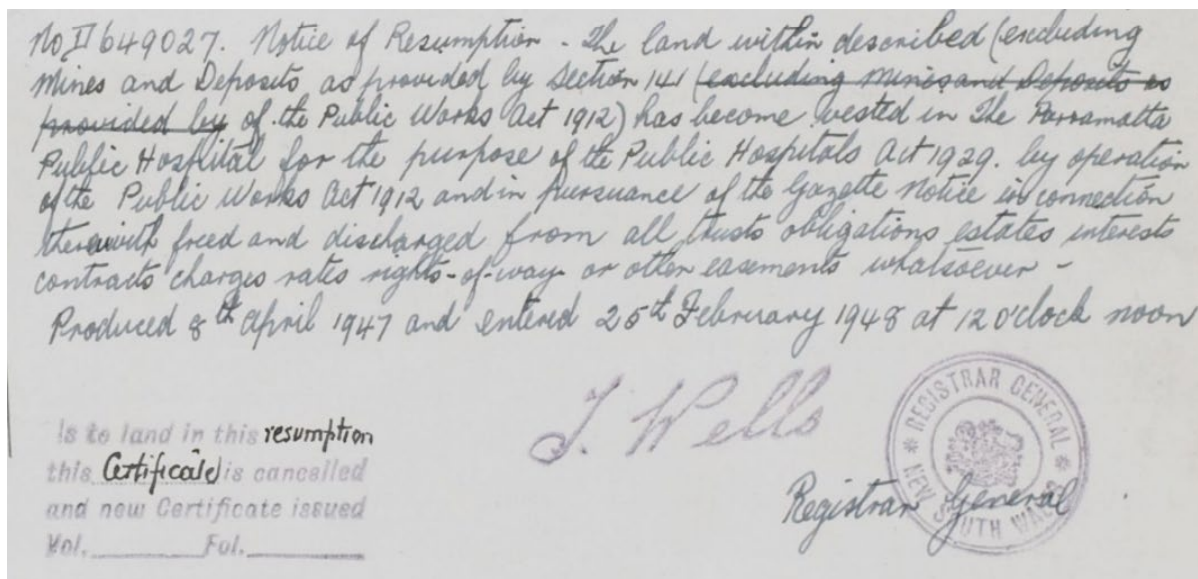 No D649027. Notice of Resumption - The land within described (excluding
Mines and Deposits, as provided by Section 141 (excluding mines and Deposits as
provided by of the Public Works Act 1912) has become vested in The Parramatta
Public Hospital for the purpose of the Public Hospitals Act 1929. by operation
of the Public Works Act 1912 and in pursuance of the Gazette Notice in connection
therewith freed and discharged from all trusts obligations estates interests
contracts charges rates rights-of-way or other easements whatsoever -
Produced 8th April 1947 and entered 25th February 1948 at 12 o'clock noon
J. Wells
Registrar General
REGISTRAR GENERAL
NEW SOUTH WALES
Is to land in this resumption
this Certificate is cancelled
and new Certificate issued
Vol. Fol.